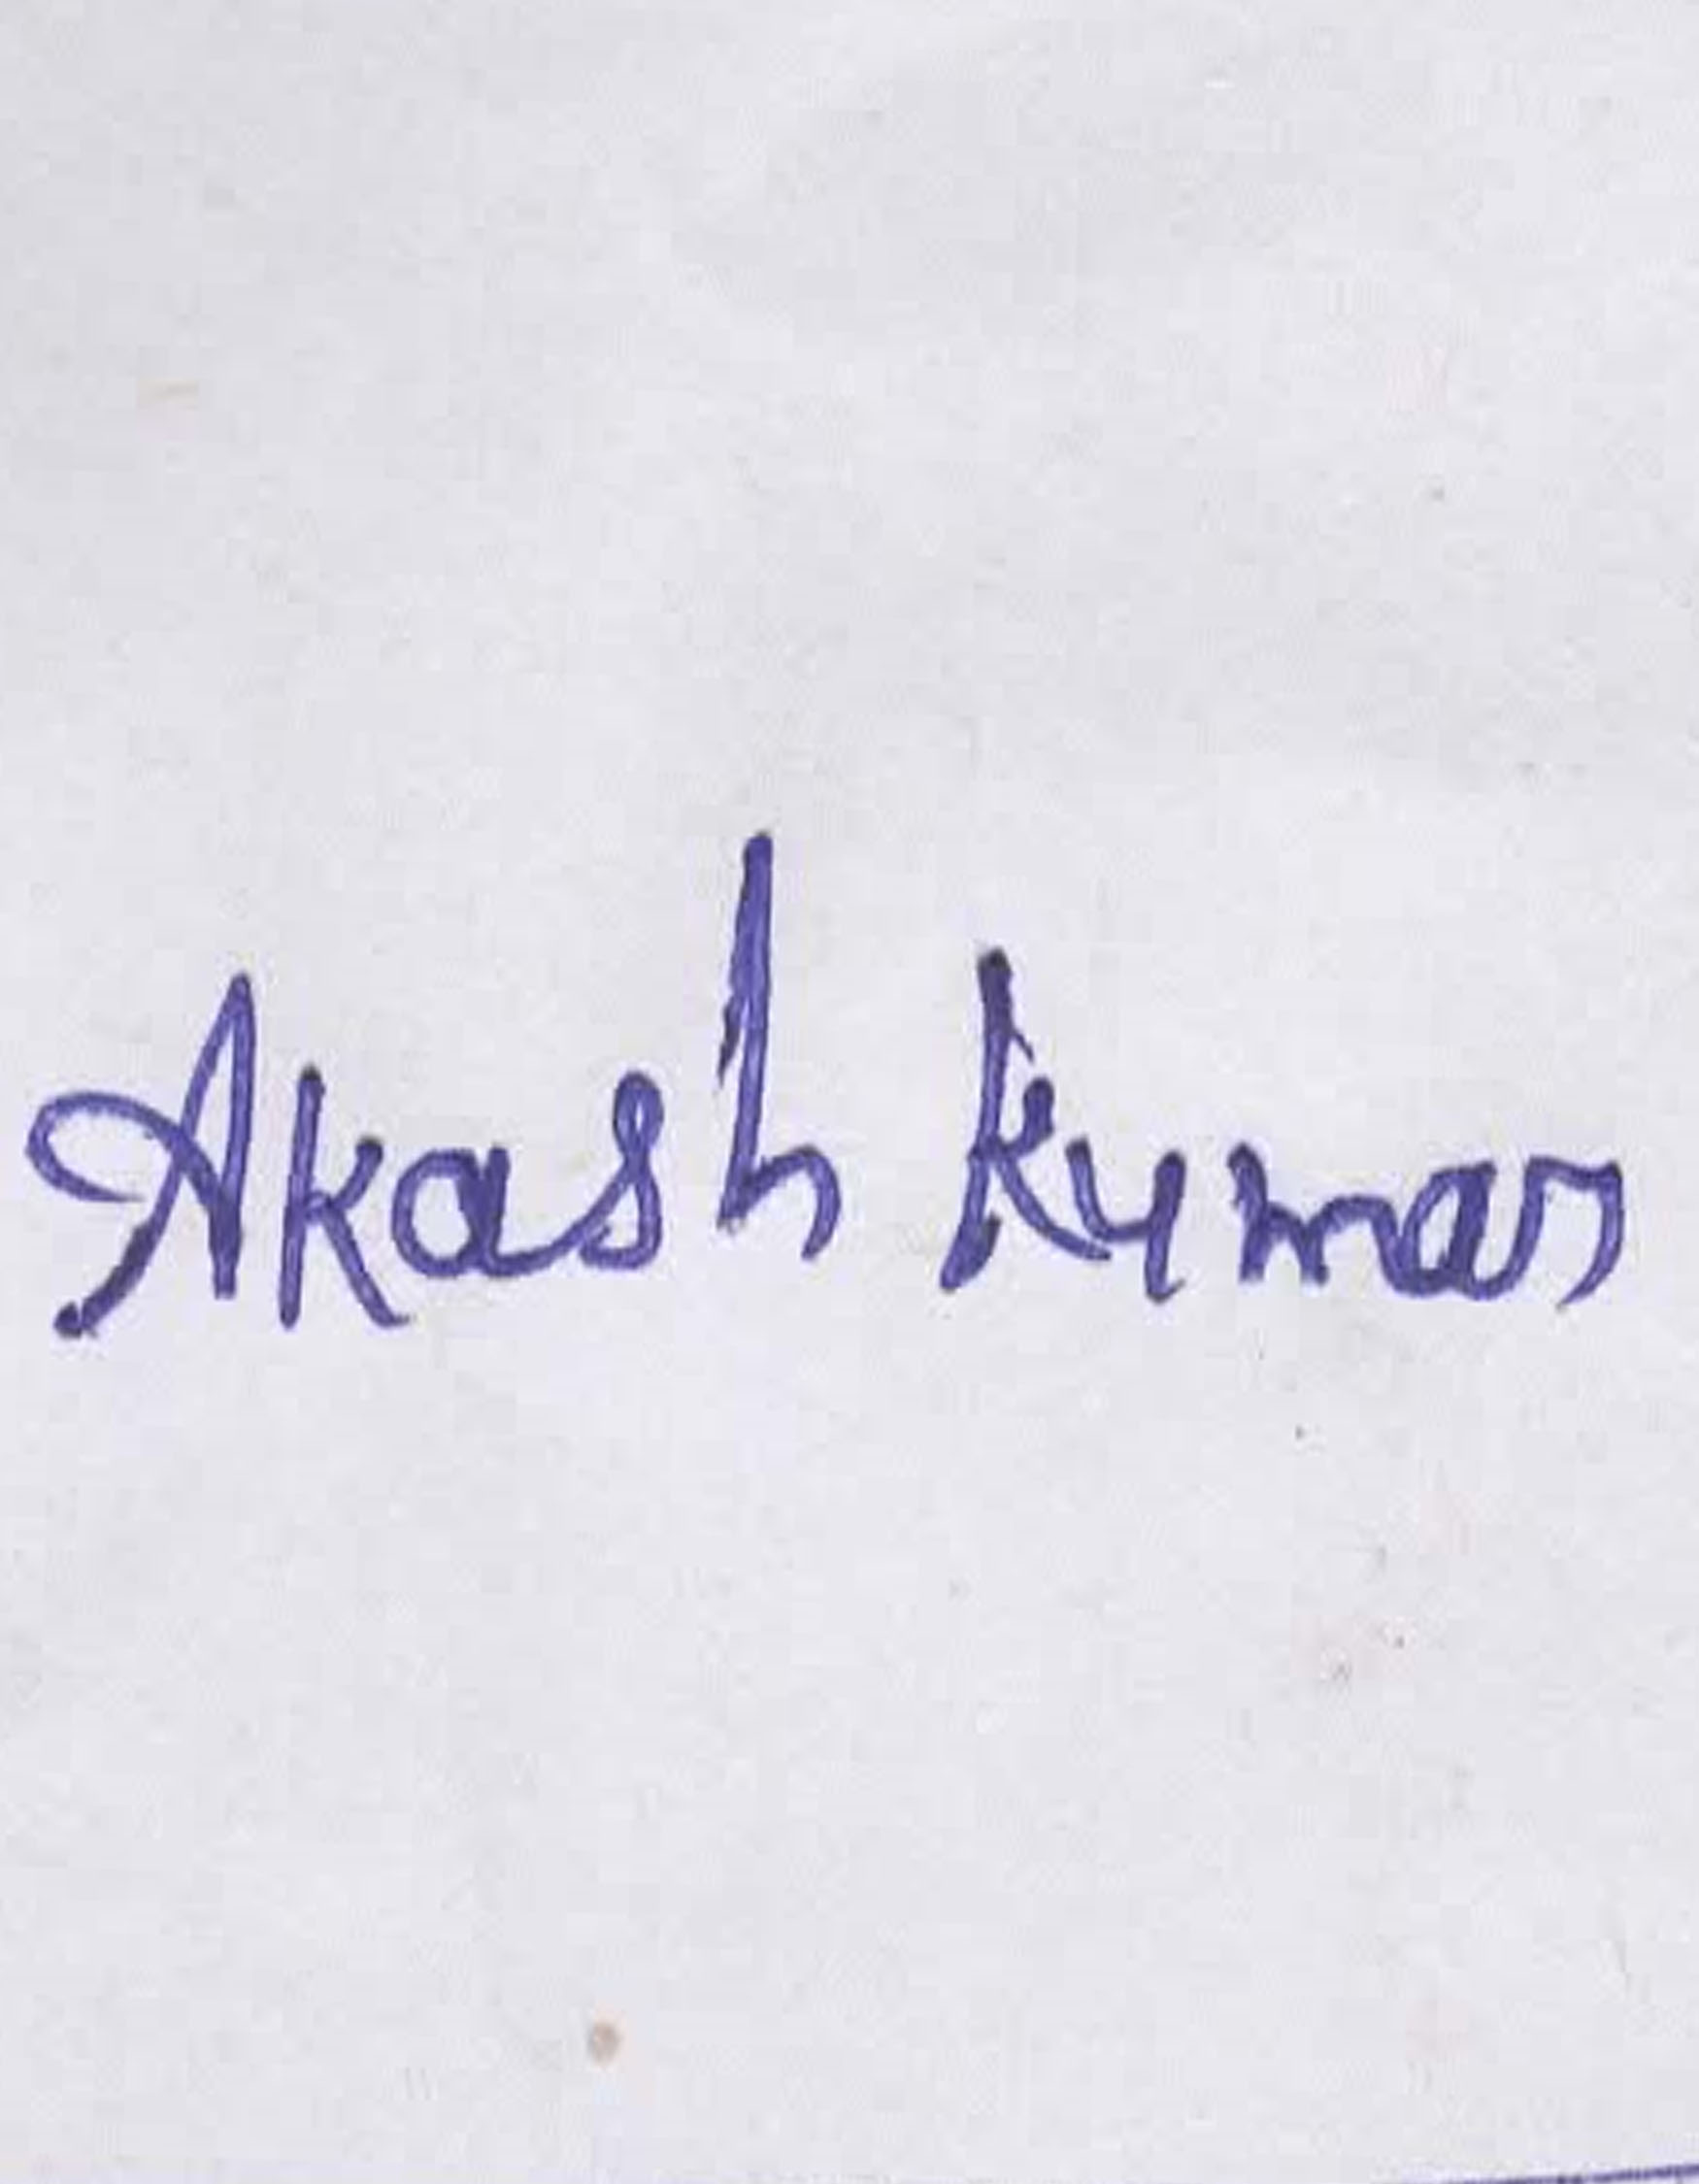 Akash Kumar